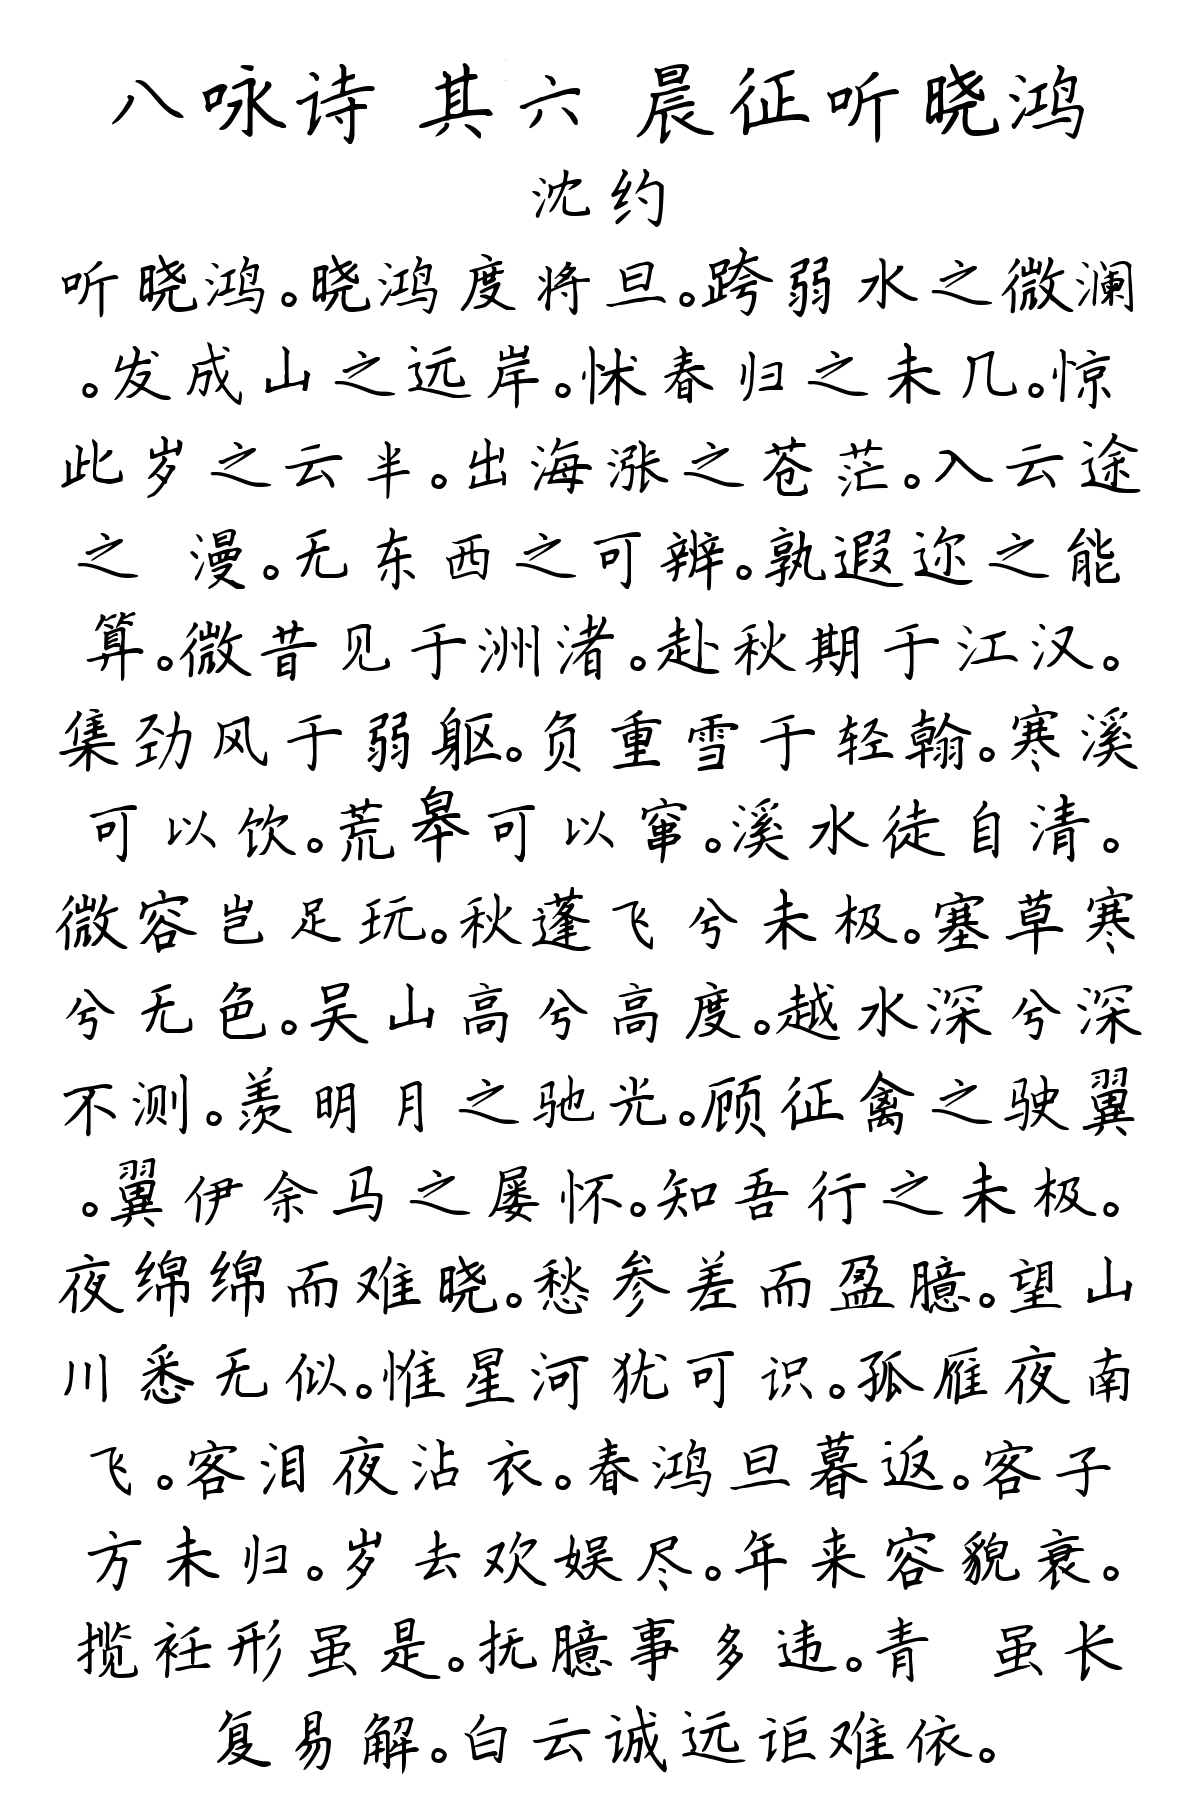 八咏诗 其六 晨征听晓鸿
沈约
听晓鸿。晓鸿度将旦。跨弱水之微澜
。发成山之远岸。怵春归之未几。惊
此岁之云半。出海涨之苍茫。入云途
之 漫。无东西之可辨。孰遐迩之能
算。微昔见于洲渚。赴秋期于江汉。
集劲风于弱躯。负重雪于轻翰。寒溪
可以饮。荒皋可以窜。溪水徒自清。
微容岂足玩。秋蓬飞兮未极。塞草寒
兮无色。吴山高兮高度。越水深兮深
不测。羡明月之驰光。顾征禽之驶翼
。翼伊余马之屡怀。知吾行之未极。
夜绵绵而难晓。愁参差而盈臆。望山
川悉无似。惟星河犹可识。孤雁夜南
飞。客泪夜沾衣。春鸿旦暮返。客子
方未归。岁去欢娱尽。年来容貌衰。
揽衽形虽是。抚臆事多违。青 虽长
复易解。白云诚远讵难依。